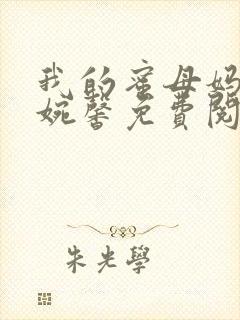 我的蜜母妈
婉馨免费阅
朱光學